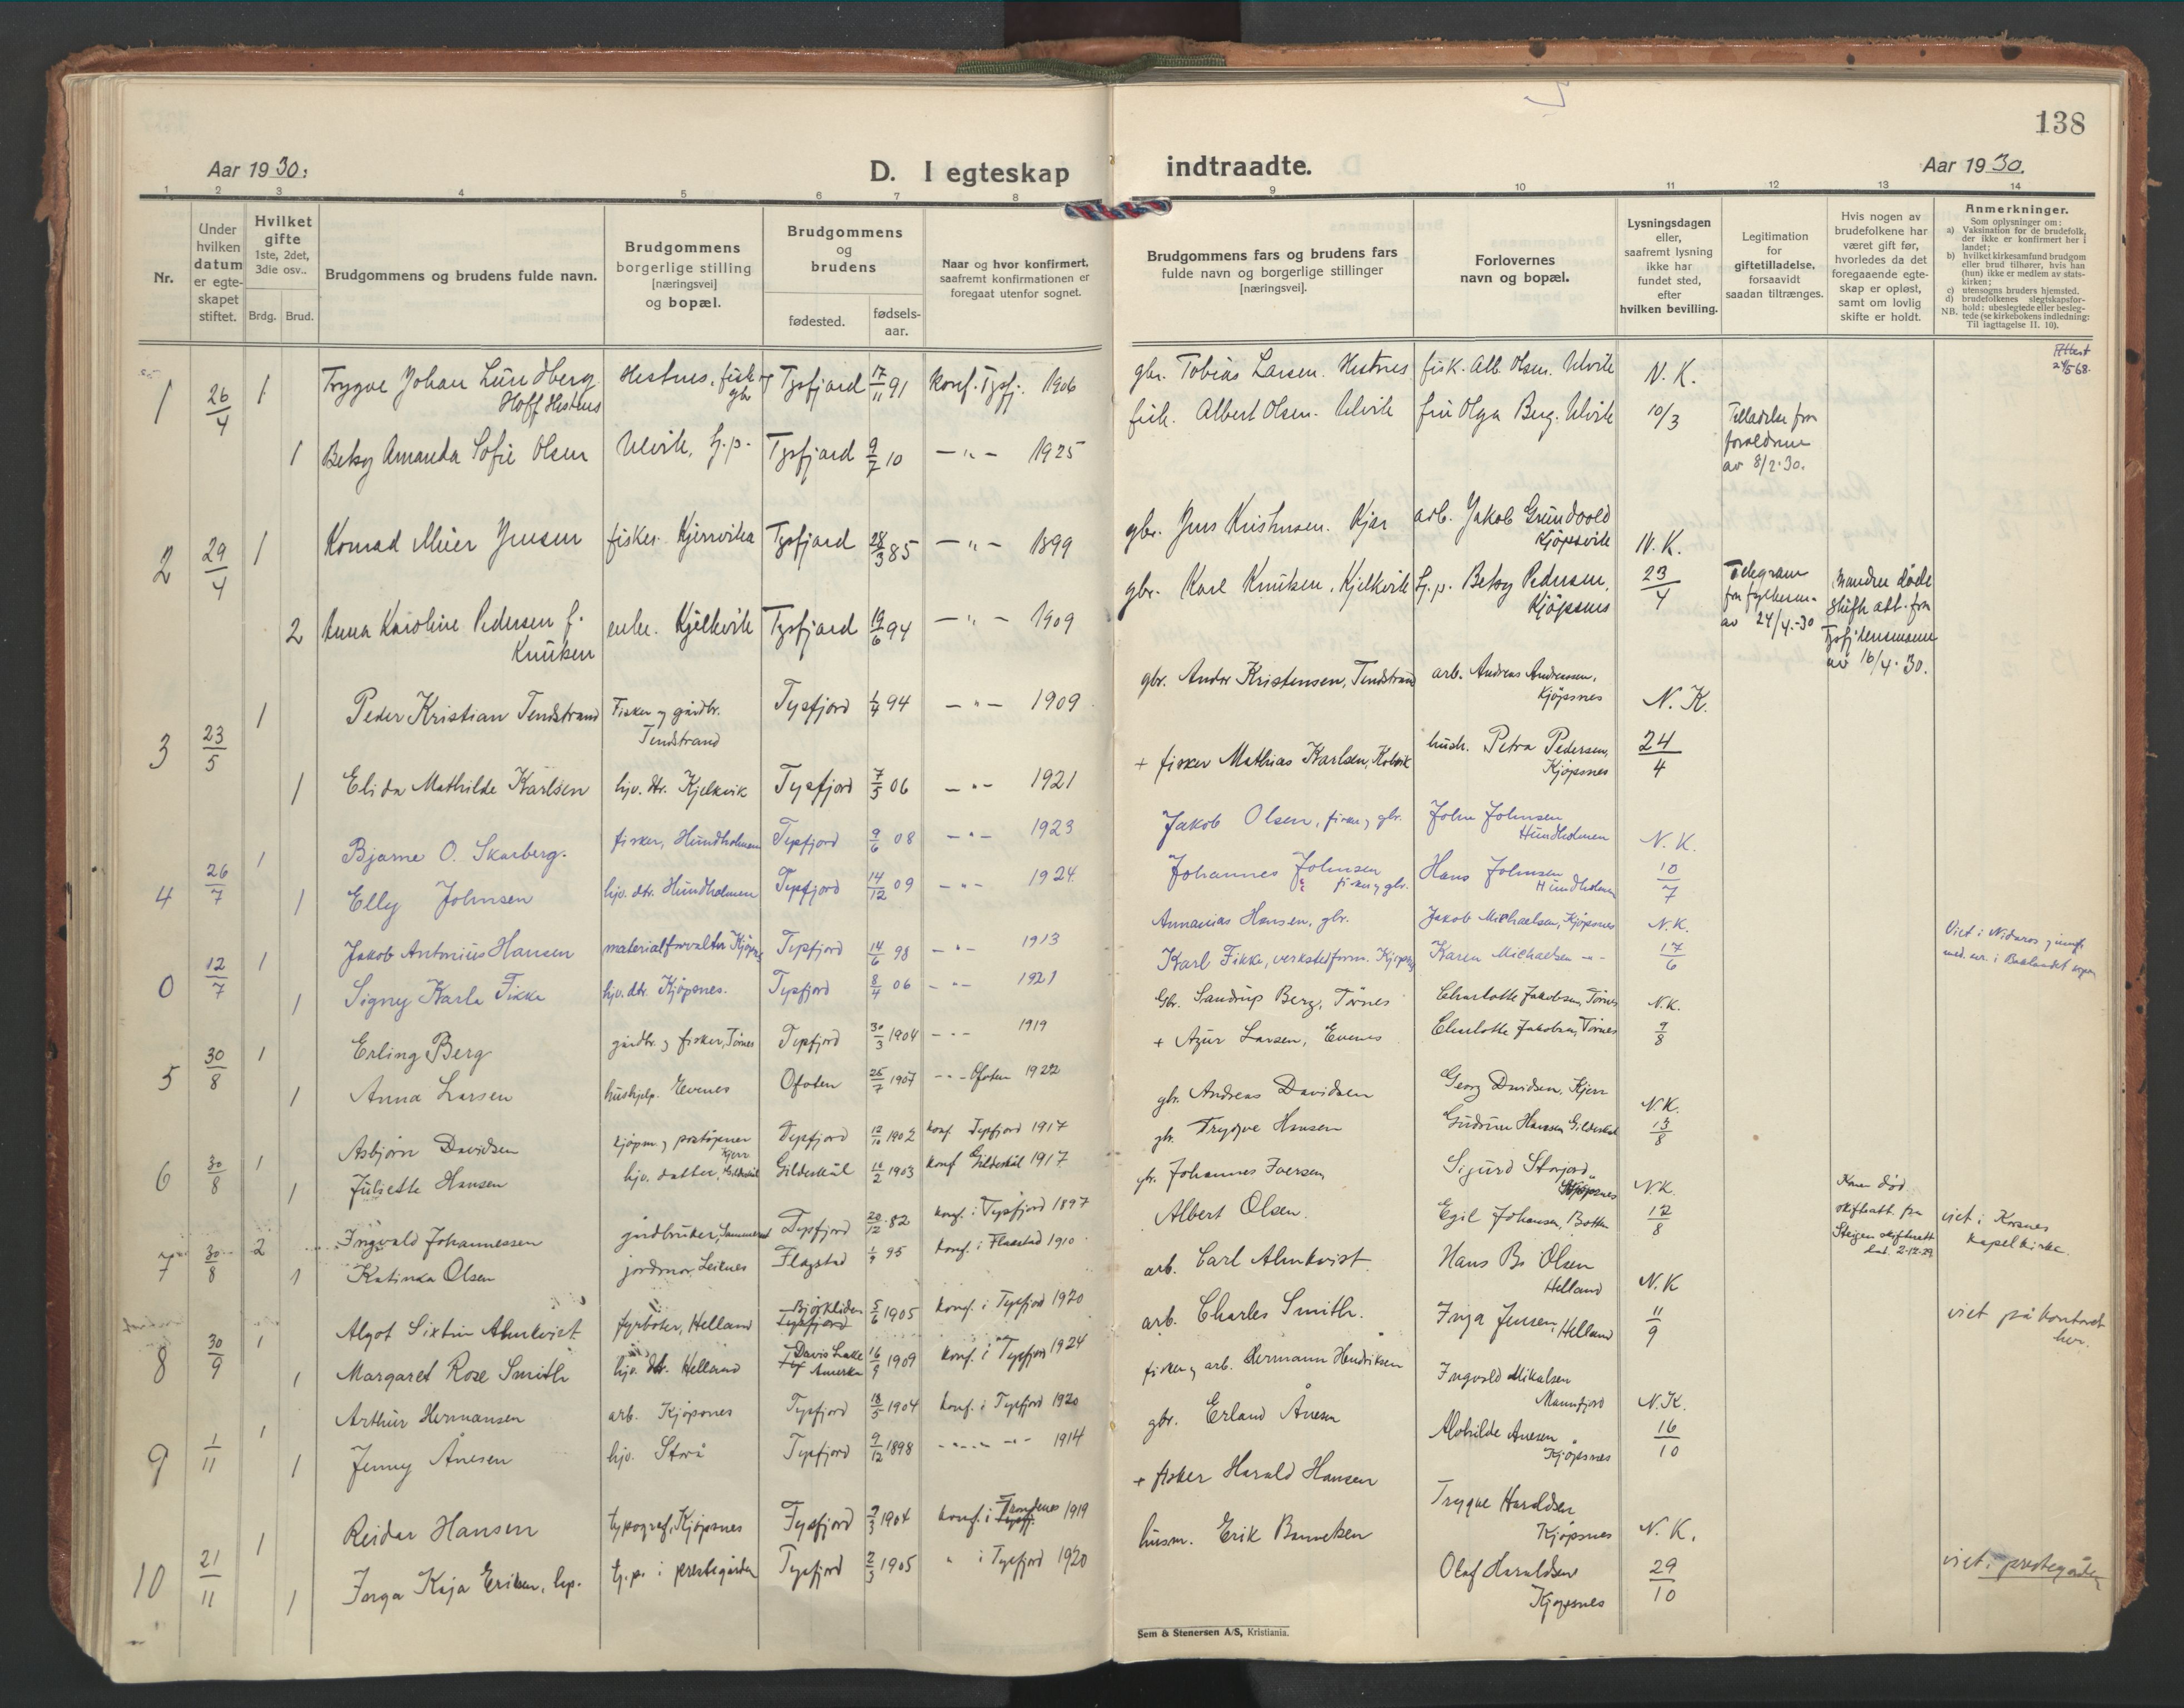 138
Aar 1930.
D. I egteskap indtraadte.
Aar 1930.
1 2 3 4 5 6 7 8 9 10 11 12 13 14
Nr.
Under hvilken datum er egteskapet stiftet.
Hvilket gifte 1ste, 2det, 3die osv..
Brdg. Brud.
Brudgommens og brudens fulde navn.
Brudgommens borgerlige stilling [næringsvei] og bopæl.
Brudgommens og brudens
fødested.
fødsels-aar.
Naar og hvor konfirmert, saafremt konfirmationen er foregaat utenfor sognet.
Brudgommens fars og brudens fars fulde navn og borgerlige stillinger [næringsvei].
Forlovernes navn og bopæl.
Lysningsdagen eller, saafremt lysning ikke har fundet sted, efter hvilken bevilling.
Legitimation for giftetilladelse, forsaavidt saadan tiltrænges.
Hvis nogen av brudefolkene har været gift før, hvorledes da det foregaaende egteskap er opløst, samt om lovlig skifte er holdt.
Anmerkninger.
Som oplysninger om:
a) Vaksination for de brudefolk, der ikke er konfirmert her i landet;
b) hvilket kirkesamfund brudgom eller brud tilhører, hvis han (hun) ikke er medlem av statskirken;
c) utensogns bruders hjemsted.
d) brudefolkenes slegtskapsforhold: ubeslegtede eller beslegtede (se kirkebokens indledning:
NB. Til iagttagelse II. 10).
1 26/4 1 Trygve Johan Lundberg Hoff Hestnes Hestnes, fisk og gbr Tysfjord 17/11 91 konf. Tysfj. 1906 gbr. Tobias Larsen. Hestnes fisk. Alb. Olsen. Ulvik N. K.
Attest
1 Betsy Amanda Sofie Olsen Ulvik, tj.p. Tysfjord 9/7 10 — " — 1925 fisk. Albert Olsen. Ulvik fru Olga Berg. Ulvik 10/3 Tilladelse fra foreldrene av 8/2-30.
2 29/4 1 Konrad Meier Jensen fisker. Kjerrvika Tysfjord 28/3 85 — " — 1899 gbr. Jens Kristensen. Kjær arb. Jakob Grundvold Kjøpsvik N. K.
2 Anna Karoline Pedersen f. Knutsen enke. Kjelkvik Tysfjord 19/6 94 — " — 1909 gbr. Karl Knutsen, Kjelkvik tj.p. Betsy Pedersen, Kjøpsnes 23/4 Telegram fra fylkesm. av 24/4-30 Manden døde skifteatt. fra Tysfj.lensmann av 16/4-30.
3 23/5 1 Peder Kristian Tendstrand Fisker og gårdbr. Tendstrand Tysfjord 1/4 94 — " — 1909 gbr. Andor Kristensen, Tendstrand arb. Andreas Andreassen, Kjøpsnes N. K.
1 Elida Mathilde Karlsen hjv. dtr. Kjelkvik Tysfjord 7/5 06 — " — 1921 + fisker Mathias Karlsen, Kolvik hush. Petra Pedersen, Kjøpsnes 24/4
4 26/7 1 Bjarne O. Skarberg. fisker, Hundholmen Tysfjord 9/6 08 — " — 1923 Jakob Olsen, fisker og gbr. John Johnsen Hundholmen N. K.
1 Elly Johnsen hjv. dtr. Hundholmen Tysfjord 14/12 09 — " — 1924 Johannes Johnsen fisker og gbr. Hans Johnsen Hundholmen 10/7
0 12/7 1 Jakob Antonius Hansen materialforvalter Kjøpsnes Tysfjord 14/6 98 — " — 1913 Annanias Hansen, gbr. Jakob Michaelsen, Kjøpsnes N. K. Viet i Nidaros
1 Signy Karla Fikke hjv. dtr. Kjøpsnes. Tysfjord 8/4 06 — " — 1921 Karl Fikke, verkstedform. Kjøpsnes Karen Michaelsen — " — 17/6
5 30/8 1 Erling Berg gårdbr. og fisker, Tørnes Tysfjord 30/3 1904 — " — 1919 Gbr. Sandrup Berg, Tørnes Charlotte Jakobsen, Tørnes N. K.
1 Anna Larsen hushjelp. Evenes Ofoten 25/7 1907 — " — Ofoten 1922 + Azur Larsen, Evenes Charlotte Jakobsen, Tørnes 9/8
6 30/8 1 Asbjørn Davidsen kjøpm og poståpner Kjerr Tysfjord 12/10 1902 konf Tysfjord 1917 gbr. Andreas Davidsen Georg Davidsen, Kjerr N. K.
1 Juliette Hansen hjv. datter, Gildeskål Gildeskål 10/2 1903 konf Gildeskål 1917 gbr. Trygve Hansen Gudrun Hansen Gildeskål 13/8
7 30/8 2 Ingvald Johannessen gårdbruker, Tysfjord 20/12 82 konf. i Tysfjord 1897 gbr. Johannes Iversen Sigurd Storjord, Kjøpsnes N. K. Konen død skifteatt. fra Steigen skifterett dat. 2-12-29. viet i Korsnes kapelkirke.
1 Katinka Olsen jordmor, Leiknes Flagstad 95 konf. i Flakstad 1910 Albert Olsen. Egil Johansen, Botten 12/8
8 30/9 1 Algot Sixtin Almkvist fyrbøter, Helland Bjørkliden Tysfjord 5/6 1905 konf. i Tysfjord 1920 arb. Carl Almkvist Hans B. Olsen Helland N. K viet på kontoret her.
1 Margaret Rose Smith hjv. dtr. Helland Davis Lake Amerika 16/9 1909 konf. i Tysfjord 1924 arb. Charles Smith. Inga Jensen, Helland 11/9
9 1/11 1 Arthur Hermansen arb. Kjøpsnes Tysfjord 18/5 1904 konf. i Tysfjord 1920 fisker og arb. Hermann Hendriksen Ingvald Mikalsen Mannfjord N. K.
1 Jenny Ånesen hjv. Storå Tysfjord 9/12 1898 — " — 1914 gbr. Erland Ånesen Alvhilde Anesen Kjøpsnes 16/10
10 21/11 1 Reidar Hansen typograf, Kjøpsnes Tysfjord 2/3 1904 konf. i Trondenes 1919 + fisker Harald Hansen Trygve Haraldsen Kjøpsnes N. K.
1 Inga Kaja Eriksen, lap. tj.p. i prestegården Tysfjord 2/3 1905 " i Tysfjord 1920 husm. Erik Olaf Haraldsen Kjøpsnes 29/10 viet i prestegården
Sem & Stenersen A/S, Kristiania.